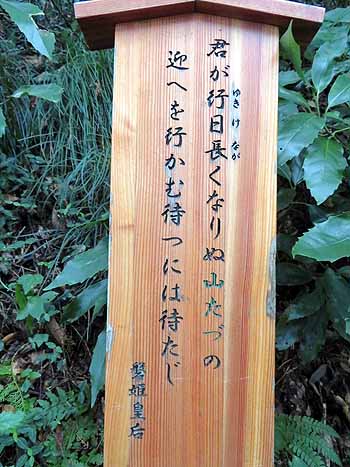 君が行日長くなりぬ山たづの
ゆき け なが
迎へを行かむ待つには待たじ
磐姫皇后